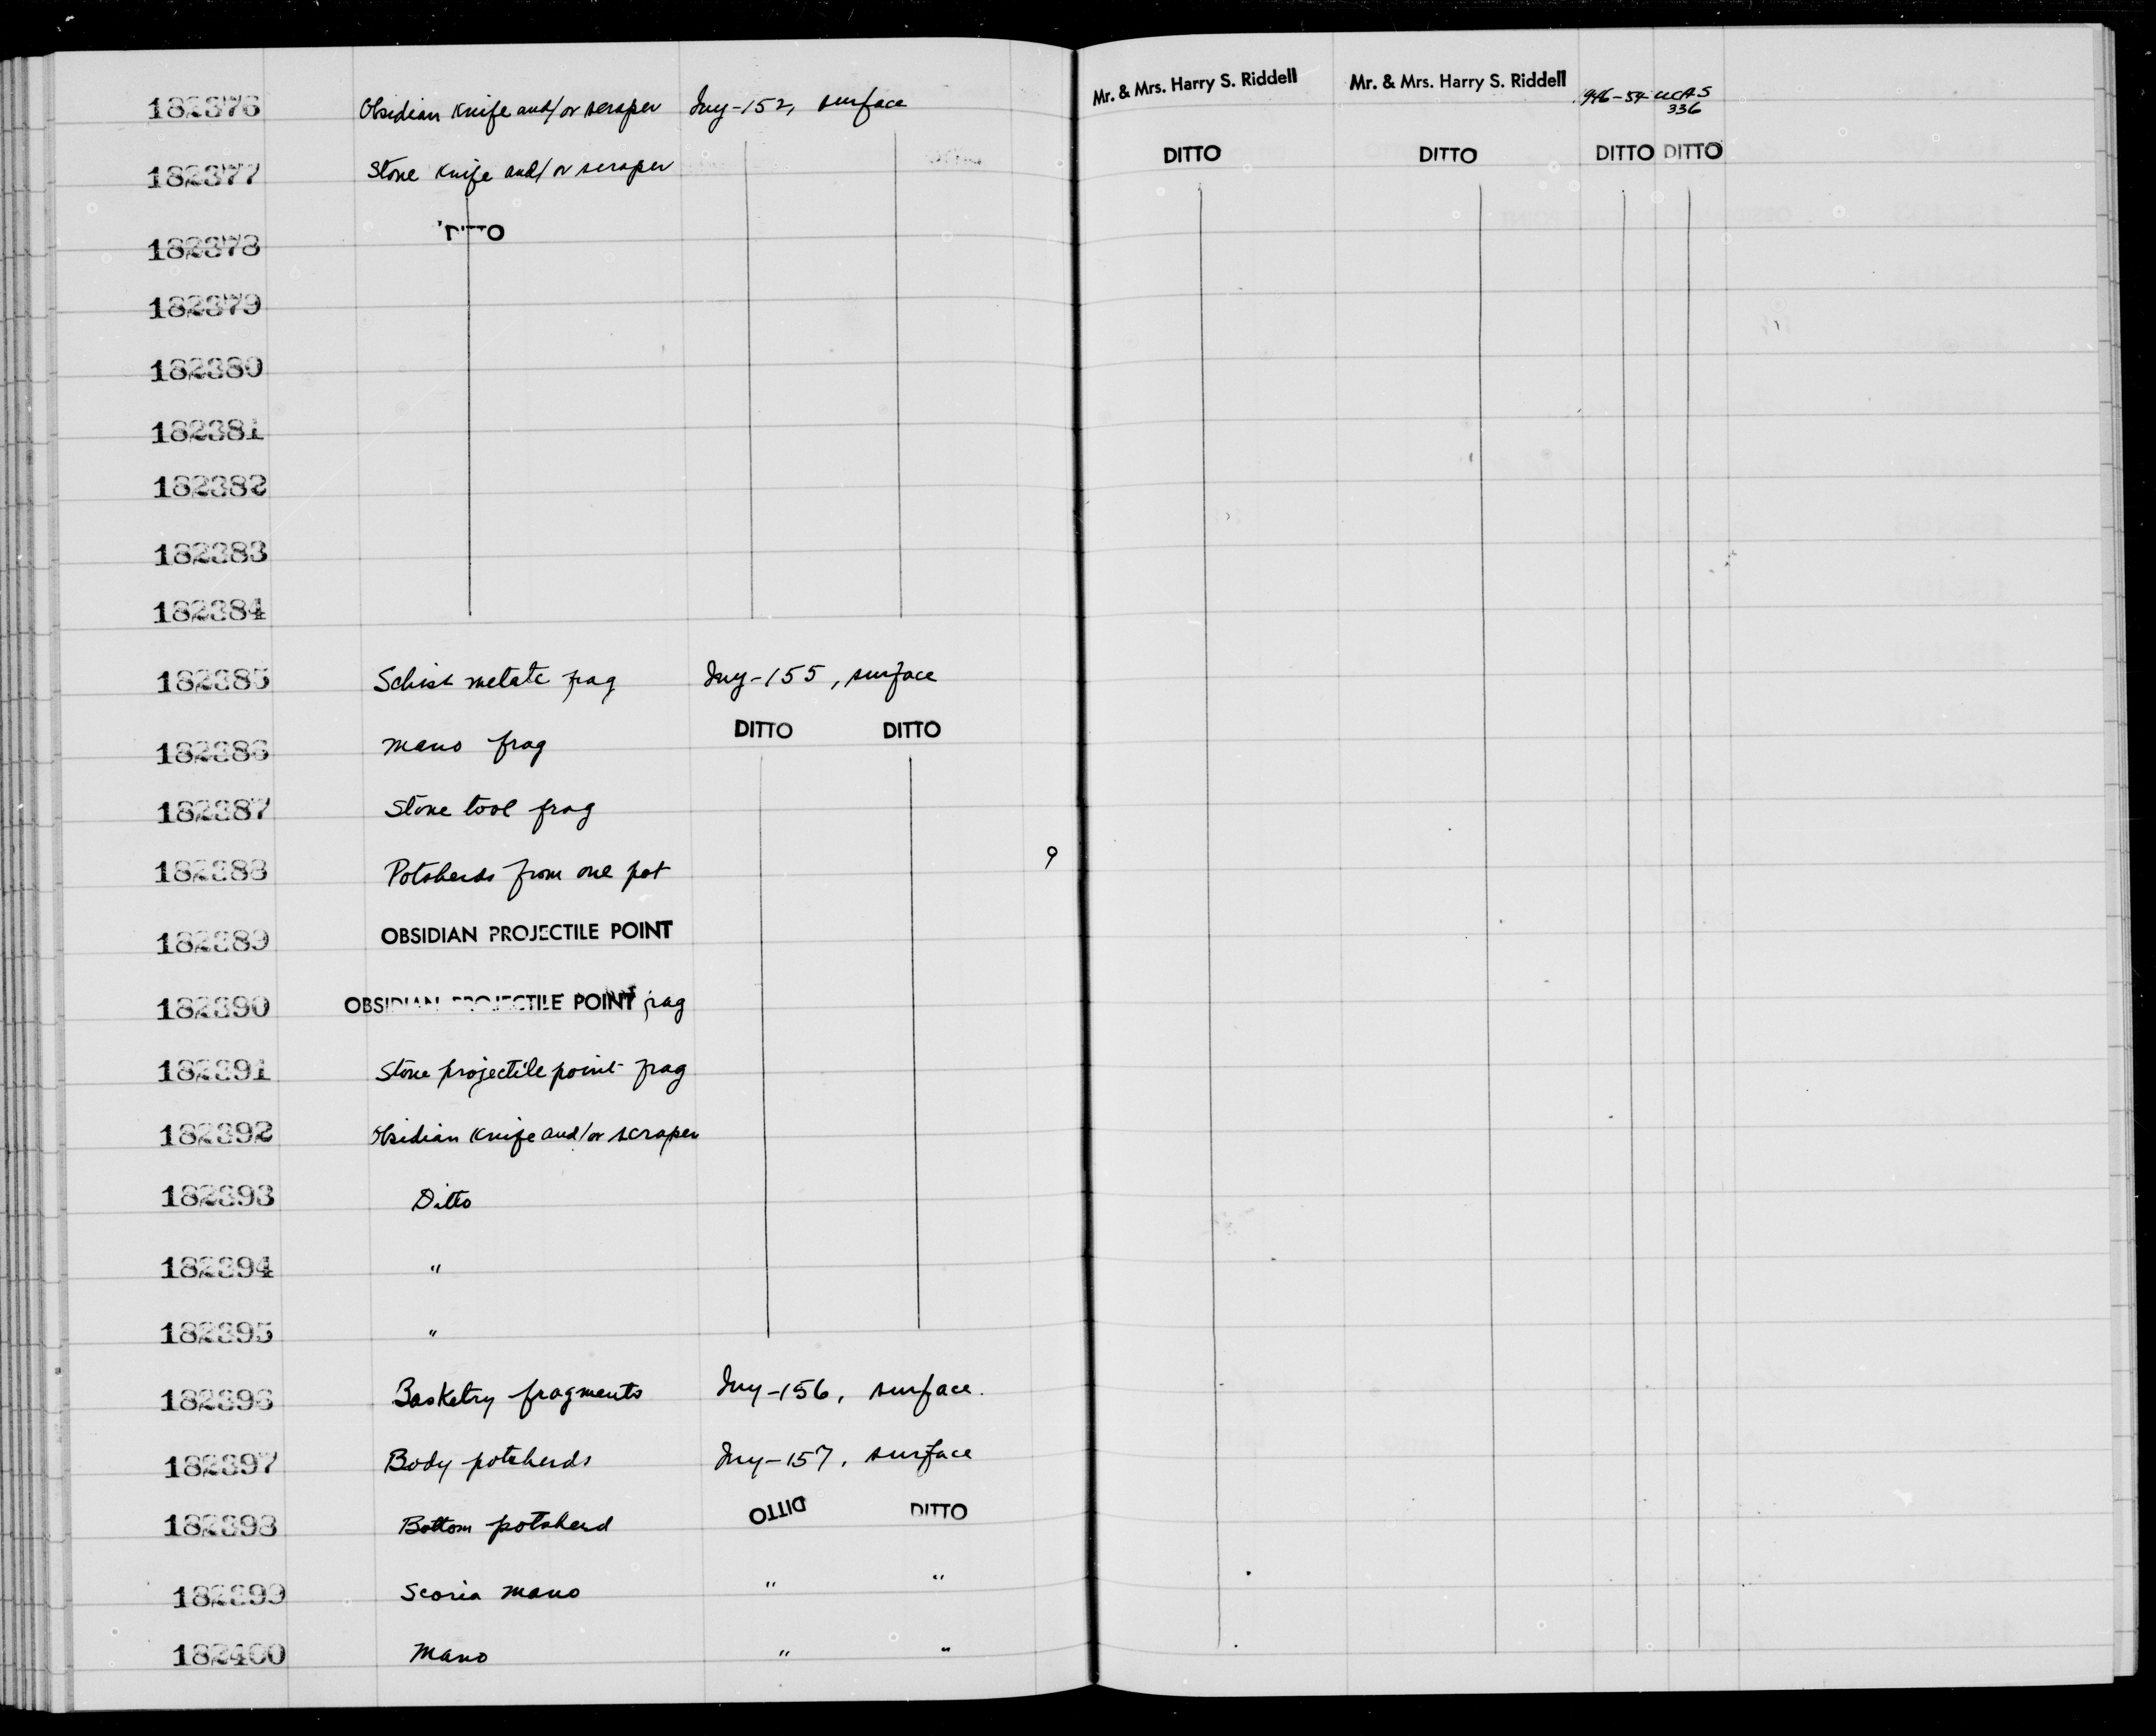 182376 Obsidian Knife and/or scraper Iny-152, surface Mr. & Mrs. Harry S. Riddell Mr. & Mrs. Harry S. Riddell 1946-54 UCAS 336
182377 Stone Knife and/or scraper DITTO DITTO DITTO DITTO
182378 DITTO
182379
182380
182381
182382
182383
182384
182385 Schist metate frag Iny-155, surface
182386 Mano frag DITTO DITTO
182387 Stone tool frag
182388 Potsherds from one pot 9
182389 OBSIDIAN PROJECTILE POINT
182390 OBSIDIAN PROJECTILE POINT frag
182391 Stone projectile point frag
182392 Obsidian Knife and/or scraper
182393 Ditto
182394 "
182395 "
182396 Basketry fragments Iny-156, surface.
182397 Body potsherds Iny-157, surface
182398 Bottom potsherd DITTO DITTO
182399 Scoria mano " "
182400 Mano " "